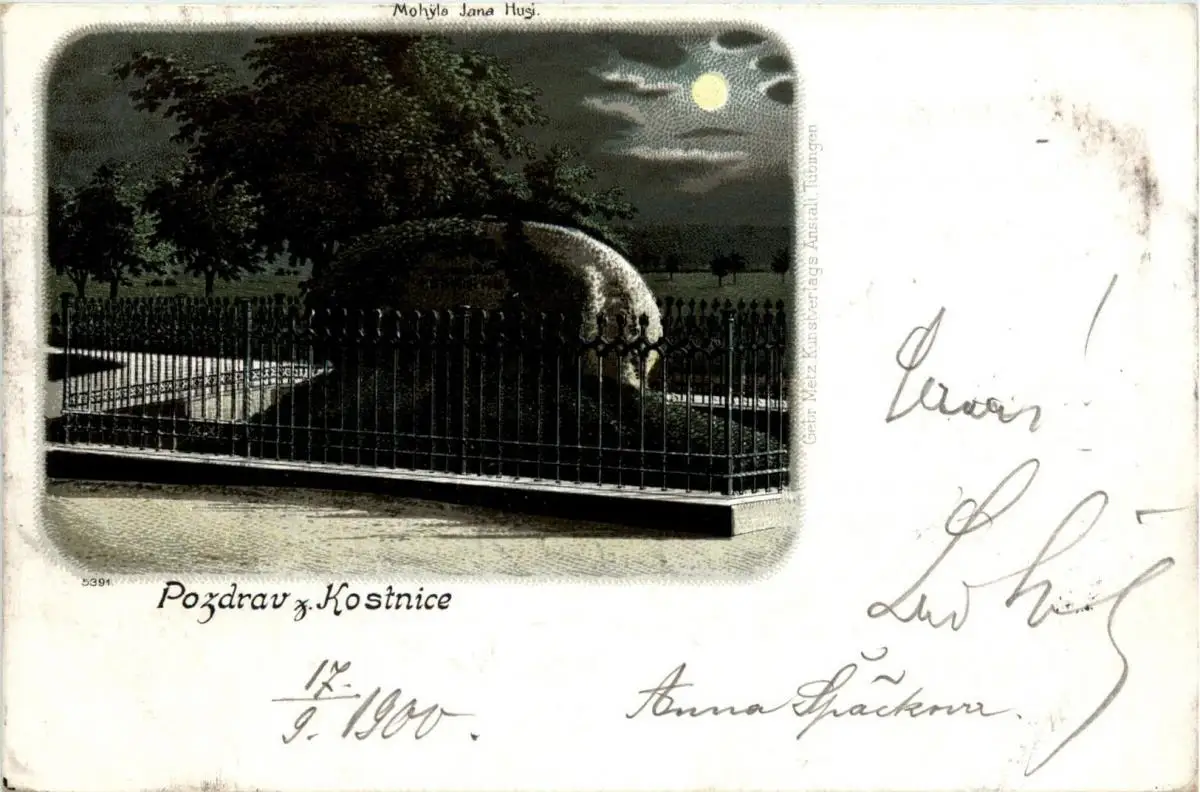 Mohyla Jana Husi.
Gebr Metz Kunstverlags Anstalt Tübingen
5391.
Pozdrav z. Kostnice
17.
9. 1900.
Anna Špačkova.